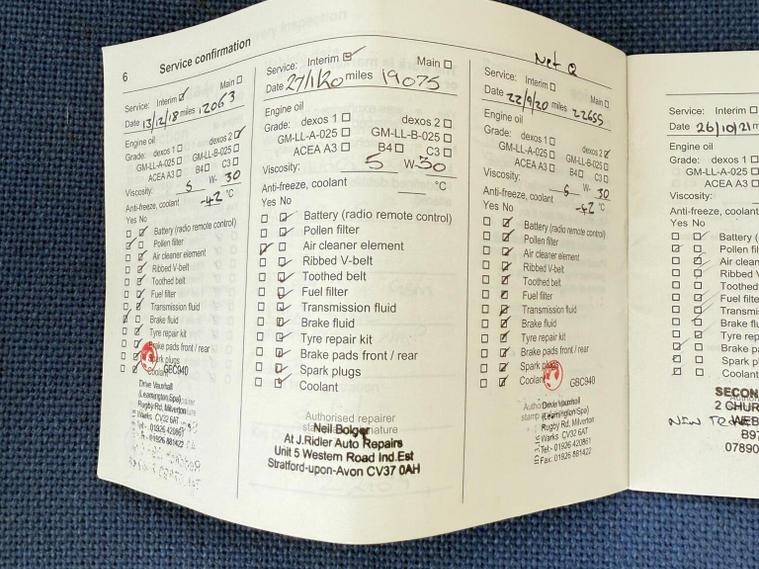 6 Service confirmation
Service: Interim Main
Date 13/12/18 miles 12063
Engine oil
Grade: dexos 1 dexos 2
GM-LL-A-025 GM-LL-B-025
ACEA A3 B4 C3
Viscosity: 5 W- 30
Anti-freeze, coolant -42 °C
Yes No
Battery (radio remote control)
Pollen filter
Air cleaner element
Ribbed V-belt
Toothed belt
Fuel filter
Transmission fluid
Brake fluid
Tyre repair kit
Brake pads front / rear
Spark plugs
Coolant GBC940
Drive Vauxhall
(Leamington Spa)
Rugby Rd, Milverton
Warks CV32 6AT
Tel:- 01926 420861
01926 881422
Service: Interim Main
Date 27/1/20 miles 19075
Engine oil
Grade: dexos 1 dexos 2
GM-LL-A-025 GM-LL-B-025
ACEA A3 B4 C3
Viscosity: 5 W-30
Anti-freeze, coolant °C
Yes No
Battery (radio remote control)
Pollen filter
Air cleaner element
Ribbed V-belt
Toothed belt
Fuel filter
Transmission fluid
Brake fluid
Tyre repair kit
Brake pads front / rear
Spark plugs
Coolant
Authorised repairer
Neil Bolger
At J.Ridler Auto Repairs
Unit 5 Western Road Ind.Est
Stratford-upon-Avon CV37 0AH
Service: Interim Main
Date 22/9/20 miles 22655
Engine oil
Grade: dexos 1 dexos 2
GM-LL-A-025 GM-LL-B-025
ACEA A3 B4 C3
Viscosity: 5 W- 30
Anti-freeze, coolant -42 °C
Yes No
Battery (radio remote control)
Pollen filter
Air cleaner element
Ribbed V-belt
Toothed belt
Fuel filter
Transmission fluid
Brake fluid
Tyre repair kit
Brake pads front / rear
Spark plugs
Coolant GBC940
Drive Vauxhall
(Leamington Spa)
Rugby Rd, Milverton
Warks CV32 6AT
Tel:- 01926 420861
Fax: 01926 881422
Service: Interim
Date 26/10/21 m
Engine oil
Grade: dexos 1
GM-LL-A-025
ACEA A3
Viscosity:
Anti-freeze, coolant
Yes No
Battery (
Pollen fil
Air clean
Ribbed V
Toothed
Fuel filter
Transmis
Brake flu
Tyre repa
Brake pa
Spark plu
Coolant
SECON
2 CHUR
WEB
B97
07890